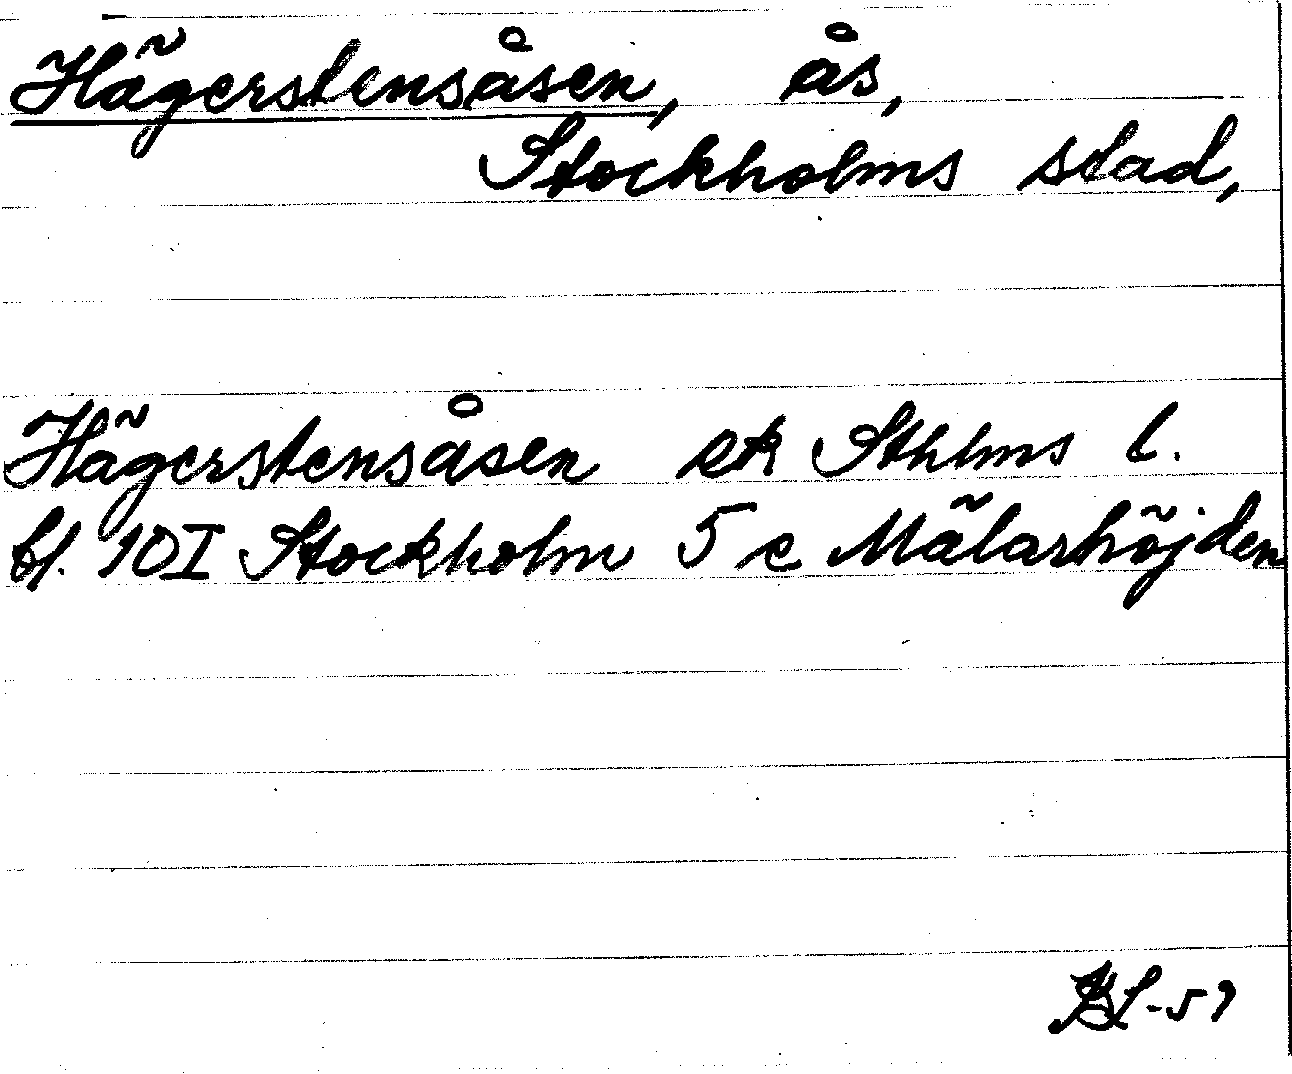 Hägerstensåsen, ås,
Stockholms stad,
Hägerstensåsen ek Sthlms l.
bl. 10I Stockholm 5 c Mälarhöjden